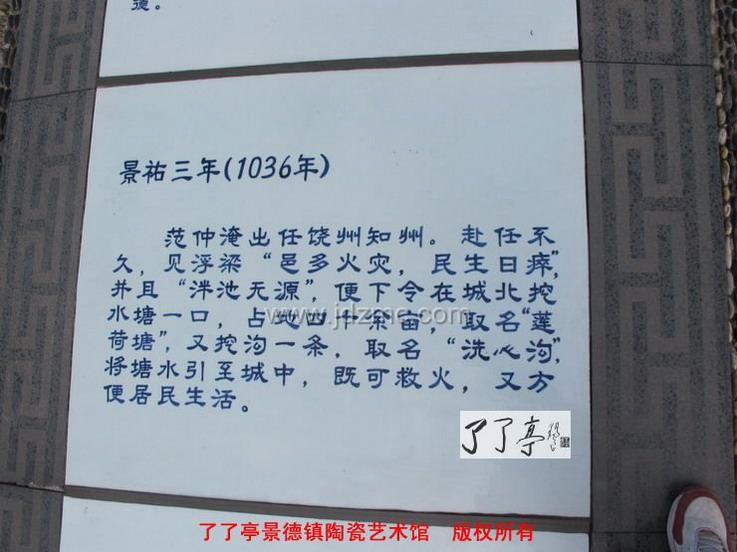 德。
景祐三年(1036年)
范仲淹出任饶州知州。赴任不
久，见浮梁“邑多火灾，民生日瘁”，
并且“泮池无源”，便下令在城北挖
水塘一口，占地四十余亩，取名“莲
荷塘”，又挖沟一条，取名“洗心沟”，
将塘水引至城中，既可救火，又方
便居民生活。
www.jdzmc.com
了了亭
了了亭景德镇陶瓷艺术馆 版权所有